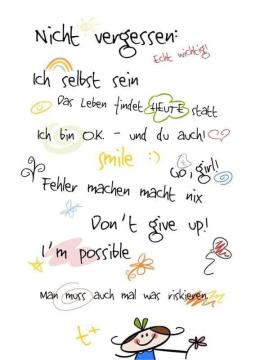 Nicht vergessen:
Echt wichtig!
Ich selbst sein
Das Leben findet HEUTE statt
Ich bin O.K. - und du auch!
smile :)
Go, girl!
Fehler machen macht nix
Don't give up!
I'm possible
Man muss auch mal was riskieren
t+